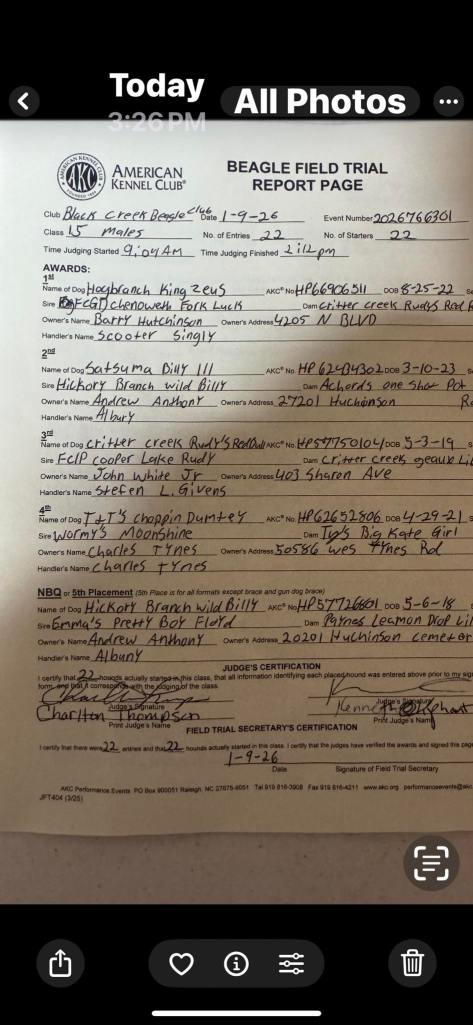 Today
3:26 PM
All Photos
AMERICAN KENNEL CLUB
FOUNDED 1884
AKC
AMERICAN
KENNEL CLUB®
BEAGLE FIELD TRIAL
REPORT PAGE
Club Black Creek Beagle Club Date 1-9-26 Event Number 2026766301
Class 15 males No. of Entries 22 No. of Starters 22
Time Judging Started 9:04 AM Time Judging Finished 2:12 pm
AWARDS:
1st
Name of Dog Hogbranch King Zeus AKC® No HP66906511 DOB 8-25-22
Sire FCGD chenoweth Fork Luck Dam Critter creek Rudys Red
Owner's Name Barry Hutchinson Owner's Address 4205 N BLVD
Handler's Name Scooter Singly
2nd
Name of Dog Satsuma Billy III AKC® No. HP 62434302 DOB 3-10-23
Sire Hickory Branch wild Billy Dam Achords one Shot Pot
Owner's Name Andrew Anthony Owner's Address 27201 Huchinson
Handler's Name Albury
3rd
Name of Dog critter creeks Rudy's RedBull AKC® No. HP57750104 DOB 5-3-19
Sire FCIP cooper Lake Rudy Dam Critter creek geaux
Owner's Name John White Jr Owner's Address 403 Sharon Ave
Handler's Name Stefen L. Givens
4th
Name of Dog T&T'S choppin Dumtey AKC® No. HP62652806 DOB 4-29-21
Sire Wormy's Moonshine Dam Ty's Big Kate Girl
Owner's Name Charles Tynes Owner's Address 50586 Wes Tynes Rd
Handler's Name Charles Tynes
NBQ or 5th Placement (5th Place is for all formats except brace and gun dog brace)
Name of Dog Hickory Branch wild Billy AKC® No HP57726801 DOB 5-6-18
Sire Emma's Pretty Boy Floyd Dam Paynes Leamon Drop
Owner's Name Andrew Anthony Owner's Address 20201 Huchinson cemeter
Handler's Name Albany
JUDGE'S CERTIFICATION
I certify that 22 hounds actually started in this class, that all information identifying each placed hound was entered above prior to my sig
form, and that it corresponds with the judging of the class.
Judge's Signature Judge's Signature
Charlton Thompson Kenneth
Print Judge's Name Print Judge's Name
FIELD TRIAL SECRETARY'S CERTIFICATION
I certify that there were 22 entries and that 22 hounds actually started in this class. I certify that the judges have verified the awards and signed this pag
1-9-26
Date Signature of Field Trial Secretary
AKC Performance Events PO Box 900051 Raleigh, NC 27675-9051 Tel 919 816-3908 Fax 919 816-4211 www.akc.org performanceevents@akc
JFT404 (3/25)